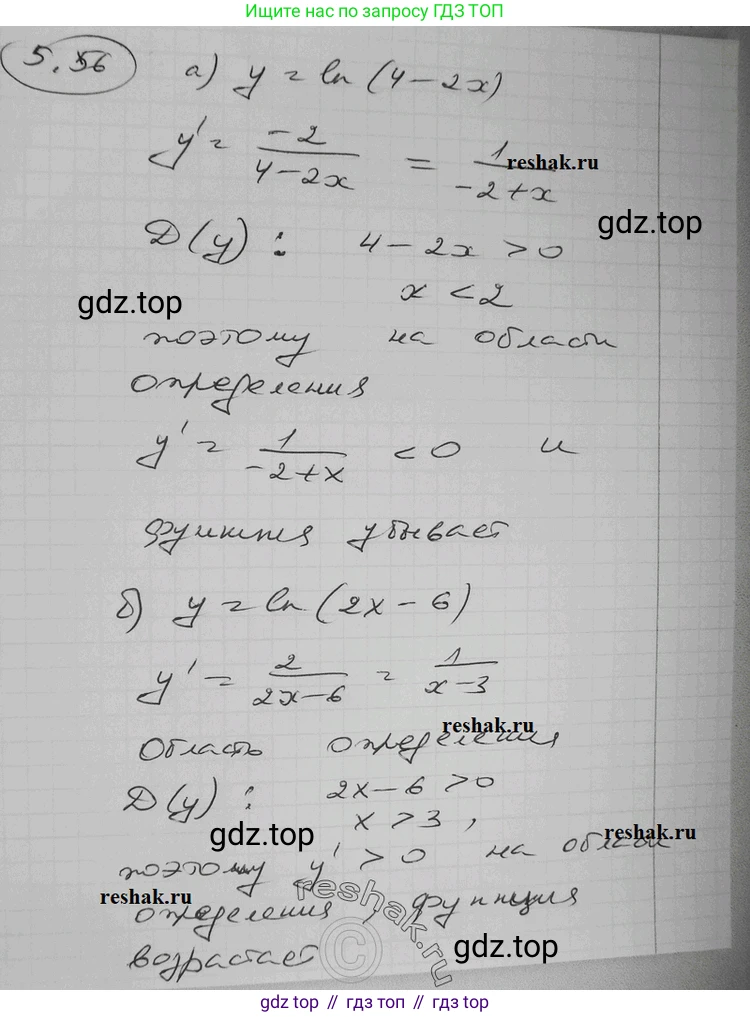 Ищите нас по запросу ГДЗ ТОП
5.56 а) y = ln (4 – 2x)
y' = -2/(4-2x) = 1/(-2+x)
reshak.ru
gdz.top
D(y) : 4 – 2x > 0
gdz.top
x < 2
поэтому на области
определения
y' = 1/(-2+x) < 0 и
функция убывает
б) y = ln (2x – 6)
y' = 2/(2x-6) = 1/(x-3)
reshak.ru
Область определения
D(y) : 2x – 6 > 0
x > 3 ,
gdz.top
reshak.ru
поэтому y' > 0 на области
reshak.ru
определения , функция
reshak.ru
©
возрастает
gdz.top
gdz top // гдз топ // gdz top